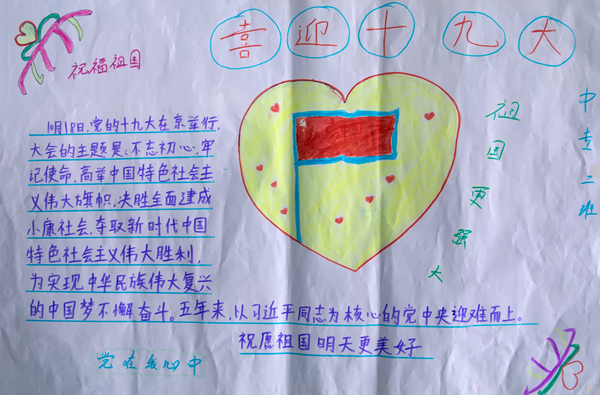 喜迎十九大
祝福祖国
10月18日,党的十九大在京举行,
大会的主题是:不忘初心,牢
记使命,高举中国特色社会主
义伟大旗帜,决胜全面建成
小康社会,夺取新时代中国
特色社会主义伟大胜利,
为实现中华民族伟大复兴
的中国梦不懈奋斗。五年来,以习近平同志为核心的党中央迎难而上。
祝愿祖国明天更美好
党在我心中
祖国更强大
中专二班